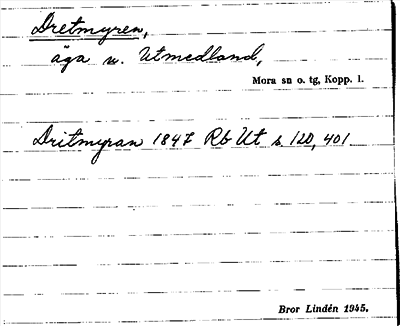 Dretmyren,
äga v. Utmedland,
Mora sn o. tg, Kopp. l.
Dritmyran 1847 Rb Ut s. 120, 401
Bror Lindén 1945.